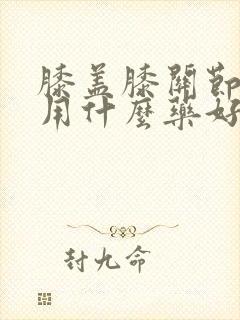 膝盖膝關節
用什麼藥好
封九命